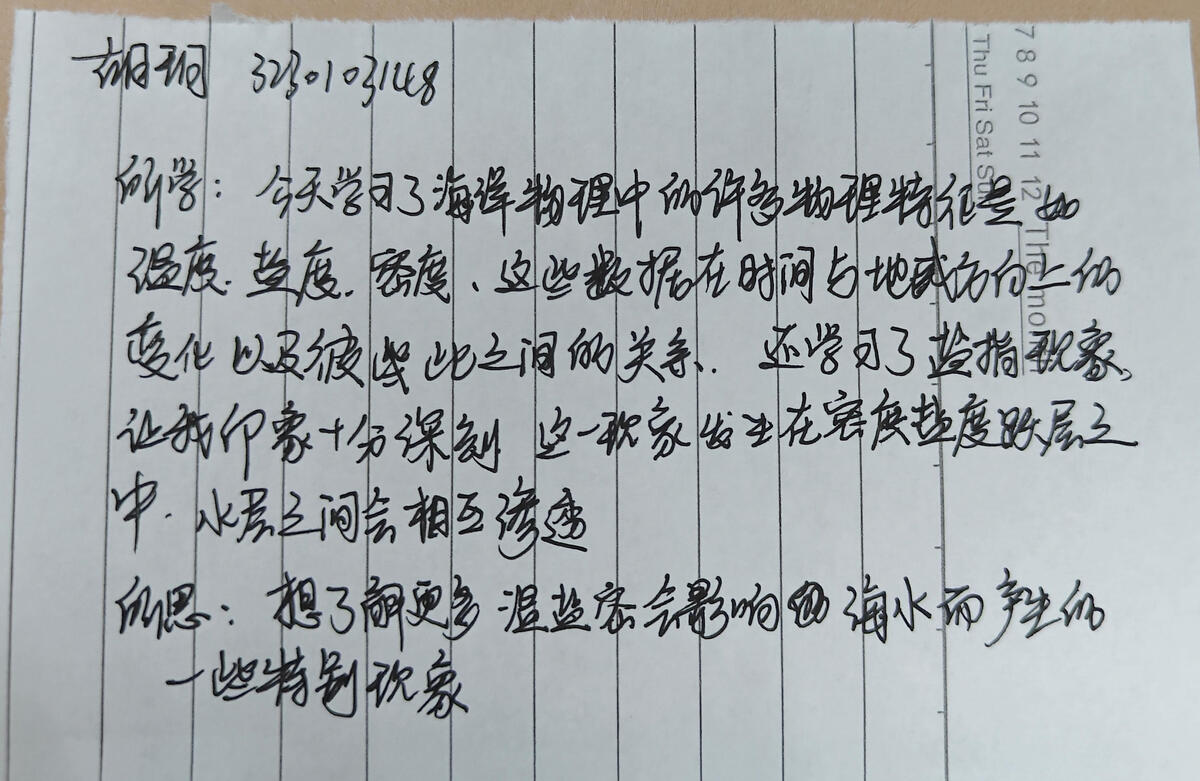 胡珂 3230103148
所学：今天学习了海洋物理中的许多物理特征是如
温度.盐度.密度、这些数据在时间与地域方向上的
变化以及彼此之间的关系. 还学习了盐指现象,
让我印象十分深刻 这一现象发生在密度盐度跃层之
中. 水层之间会相互渗透
所思：想了解更多温盐密会影响海水而产生的
一些特别现象
7 8 9 10 11 12 The mo
Thu Fri Sat Su